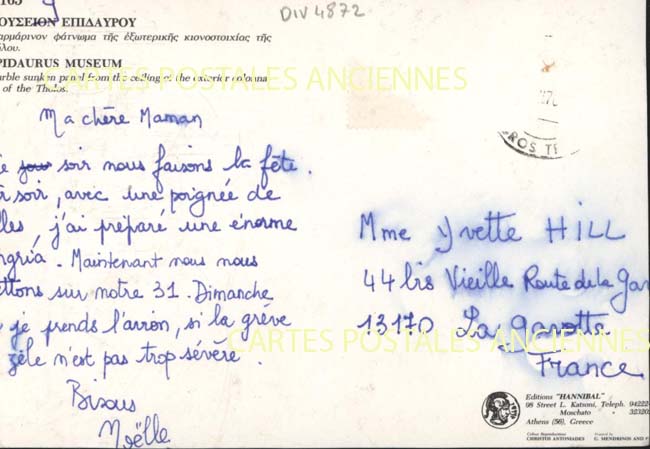 165
DIV 4872
ΟΥΣΕΙΟΝ ΕΠΙΔΑΥΡΟΥ
αρμάρινον φάτνωμα τῆς ἐξωτερικῆς κιονοστοιχίας τῆς
όλου.
PIDAURUS MUSEUM
rble sunken panel from the ceiling of the exterior colonna
of the Tholos.
CARTES POSTALES ANCIENNES
Ma chère Maman
e soir nous faisons la fête.
r soir, avec une poignée de
lles, j'ai préparé une énorme
ngria. Maintenant nous nous
ettons sur notre 31. Dimanche
je prends l'avion, si la grève
zèle n'est pas trop sévère.
Bisous
Noëlle
ROS TE
Mme Yvette HILL
44 bis Vieille Route de la Gar
13170 La Gavotte
France
CARTES POSTALES ANCIENNES
Editions "HANNIBAL"
98 Street L. Katsoni, Teleph. 94222
Moschato 32320
Athens (56), Greece
Colour Reproduction
CHRISTOS ANTONIADES
Printed by
G. MENDRINOS AND